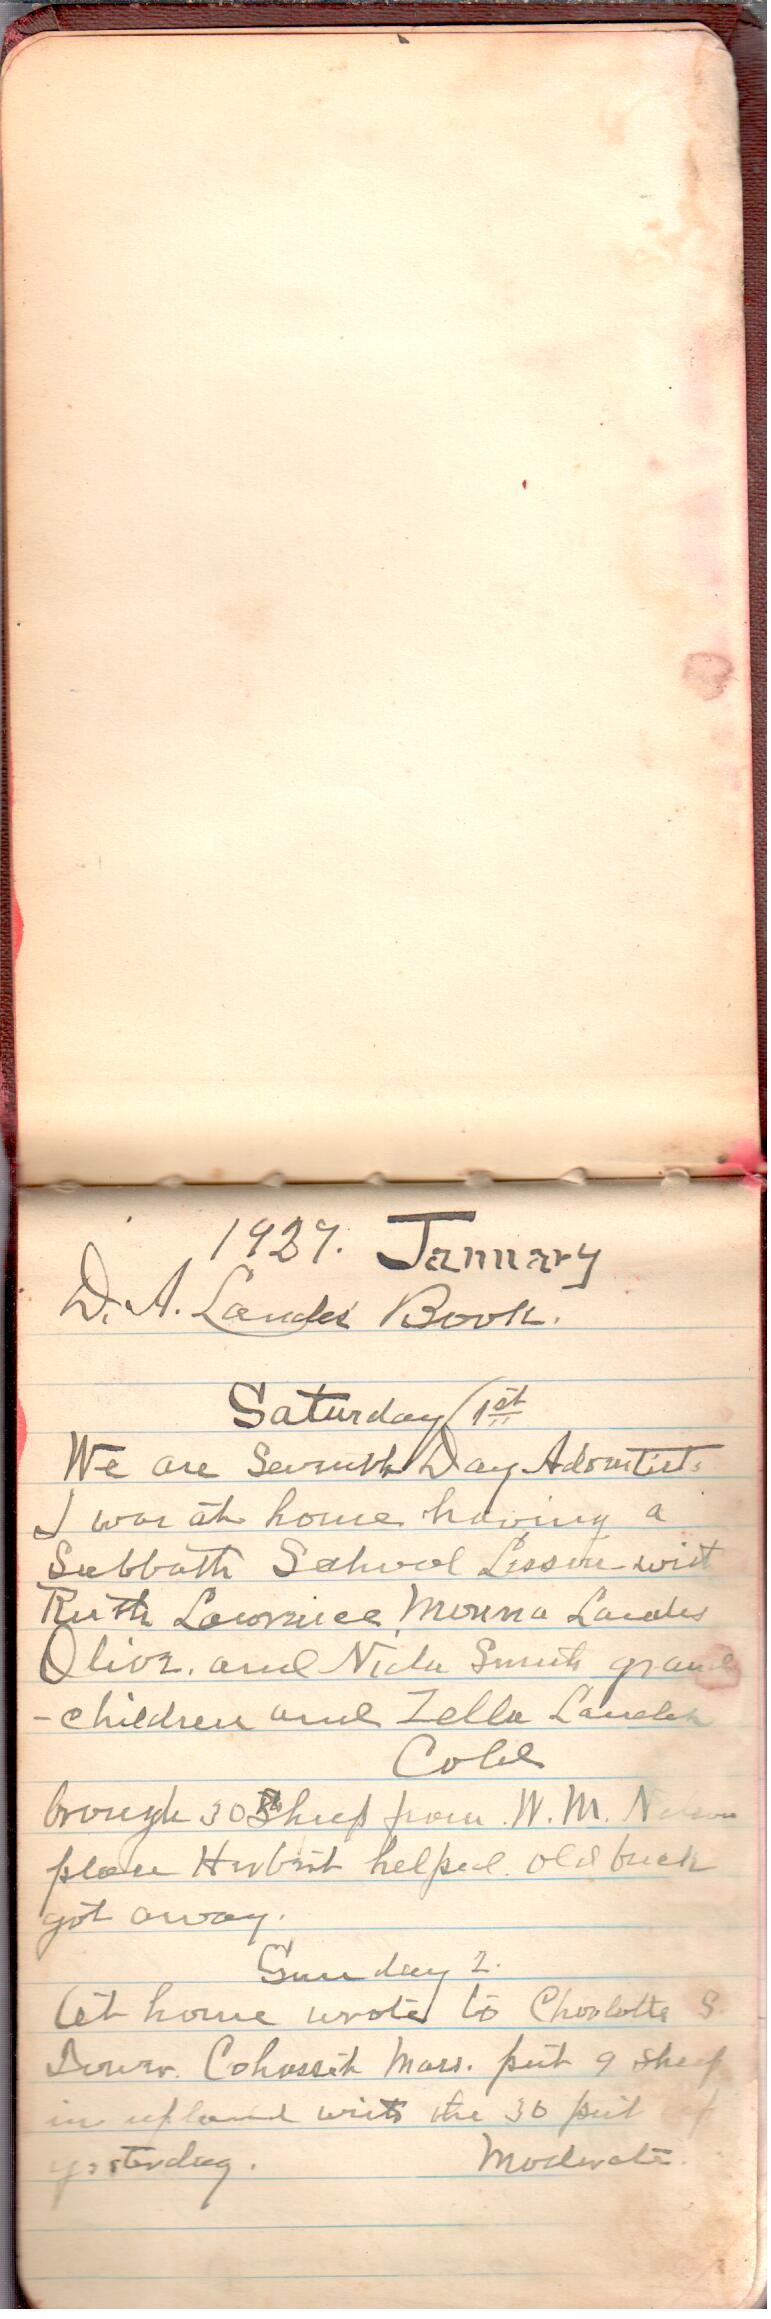 1927. January
D. A. Landes' Book.
Saturday 1st
We are Seventh Day Adventists
I was at home having a
Sabbath School Lesson with
Ruth Lawrence, Monna Landes
Olive, and Nida Smith grand
-children and Zella Landes
Cold
brough 30 Sheep from W. M.
place Herbert helped. old buck
got away.
Sunday 2.
At home wrote to Charlotte S.
Cohassett Mass. put 9 sheep
in upland with the 30 put up
yesterday. Moderate.